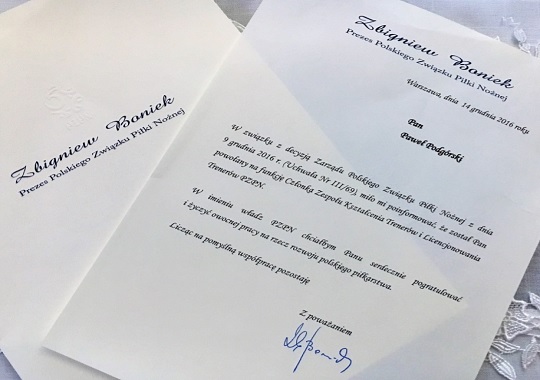 Zbigniew Boniek
Prezes Polskiego Związku Piłki Nożnej
Zbigniew Boniek
Prezes Polskiego Związku Piłki Nożnej
Warszawa, dnia 14 grudnia 2016 roku
Pan
Paweł Podgórski
W związku z decyzją Zarządu Polskiego Związku Piłki Nożnej z dnia
9 grudnia 2016 r. (Uchwała Nr III/69), miło mi poinformować, że został Pan
powołany na funkcję Członka Zespołu Kształcenia Trenerów i Licencjonowania
Trenerów PZPN.
W imieniu władz PZPN chciałbym Panu serdecznie pogratulować
i życzyć owocnej pracy na rzecz rozwoju polskiego piłkarstwa.
Licząc na pomyślną współpracę pozostaję
Z poważaniem